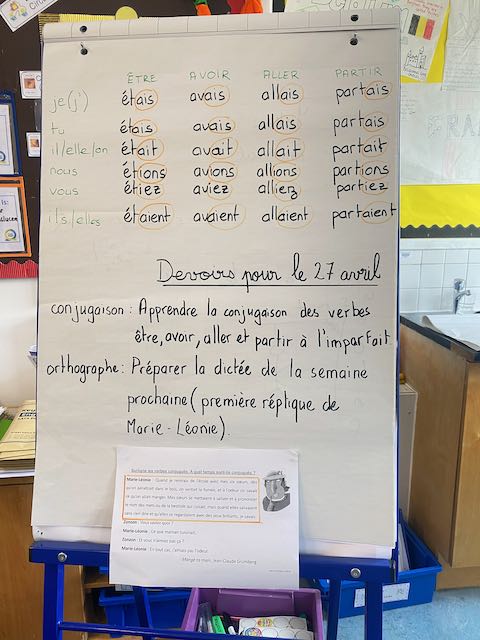 ÊTRE AVOIR ALLER PARTIR
je(j') étais avais allais partais
tu étais avais allais partais
il/elle/on était avait allait partait
nous étions avions allions partions
vous étiez aviez alliez partiez
ils/elles étaient avaient allaient partaient
Devoirs pour le 27 avril
conjugaison : Apprendre la conjugaison des verbes
être, avoir, aller et partir à l'imparfait.
orthographe : Préparer la dictée de la semaine
prochaine (première réplique de
Marie-Léonie).
Surligne les verbes conjugués. A quel temps sont-ils conjugués ?
Marie-Léonie : Quand je rentrais de l'école avec mes six sœurs, dès
qu'on pénétrait dans le bois, on sentait la fumée, et à l'odeur on savait
ce qu'on allait manger. Mes sœurs se mettaient à saliver et à prononcer
le nom des mets ou de la bestiole qui cuisait, mais quand elles savaient
Zonzon : Vous salivez quoi ?
Marie-Léonie : Ce que maman cuisinait.
Zonzon : Et vous n'aimiez pas ça ?
Marie-Léonie : En tout cas, j'aimais pas l'odeur.
Mange ta main, Jean-Claude Grumberg